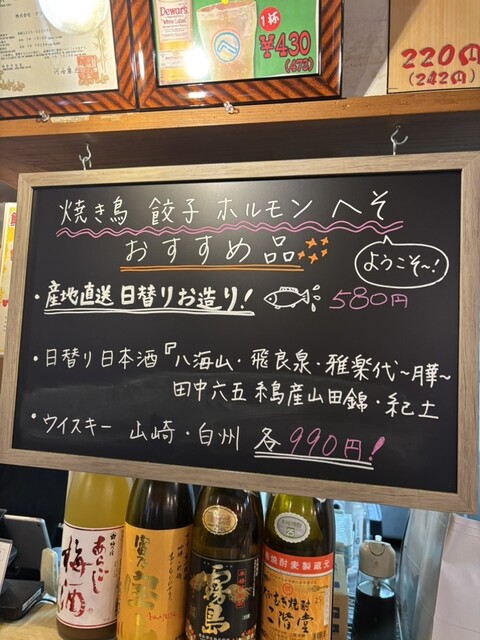 Dewar's
White Label
1杯
¥430
(473)
220円
(242円)
焼き鳥 餃子 ホルモン へそ
おすすめ品
ようこそ〜!
・産地直送 日替りお造り! 580円
・日替り日本酒『八海山・飛良泉・雅楽代〜月華〜
田中六五 糸島産山田錦・紀土
・ウイスキー 山崎・白州 各990円!
あらごし
梅酒
霧島
麦焼酎
二階堂